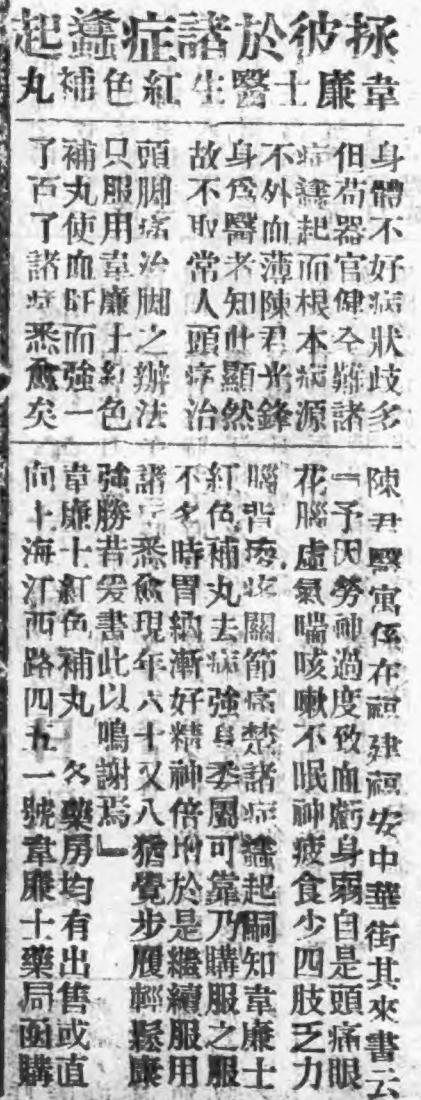 拯彼於諸症蠭起
韋廉士醫生紅色補丸
身體不好病狀歧多
但苟器官健全雖諸
症蠭起而根本病源
不外血薄陳君光鋒
身爲醫者知此顯然
故不取常人頭疼治
頭脚痛治脚之辦法
只服用韋廉士紅色
補丸使血旺而強一
了百了諸症悉愈矣
陳君醫寓係在福建福安中華街其來書云
『予因勞神過度致血虧身弱自是頭痛眼
花腦虛氣喘咳嗽不眠神疲食少四肢乏力
腦背痠疼關節痛楚諸症蠭起嗣知韋廉士
紅色補丸去病強身委屬可靠乃購服之服
不多時胃納漸好精神倍增於是繼續服用
諸症悉愈現年六十又八猶覺步履輕鬆康
強勝昔爰書此以鳴謝焉』
韋廉士紅色補丸 各藥房均有出售或直
向上海江西路四五一號韋廉士藥局函購